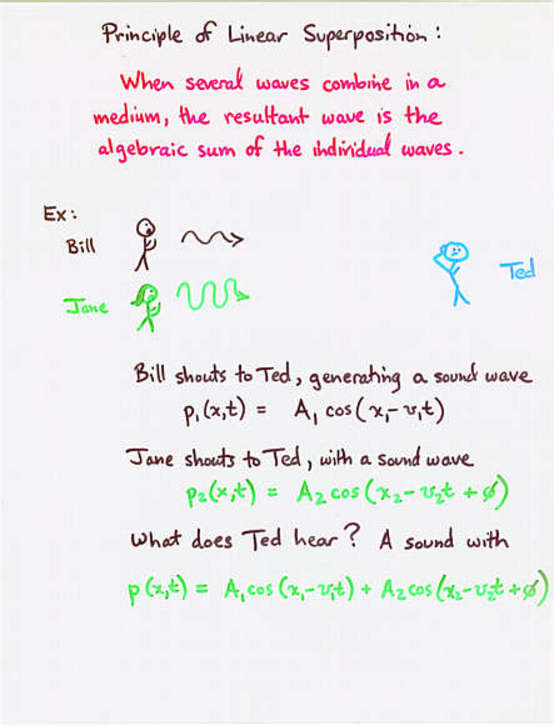 Principle of Linear Superposition:
When several waves combine in a
medium, the resultant wave is the
algebraic sum of the individual waves.
Ex:
Bill
Ted
Jane
Bill shouts to Ted, generating a sound wave
p₁(x,t) = A₁ cos(x₁-v₁t)
Jane shouts to Ted, with a sound wave
p₂(x,t) = A₂ cos(x₂-v₂t + φ)
What does Ted hear? A sound with
p(x,t) = A₁cos(x₁-v₁t) + A₂cos(x₂-v₂t+φ)